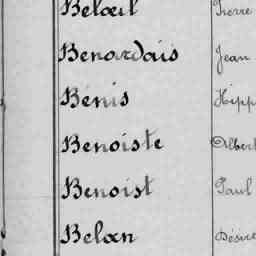 Belœil Pierre
Benardais Jean
Bénis Hipp
Benoiste Albert
Benoist Paul
Belœn Désiré